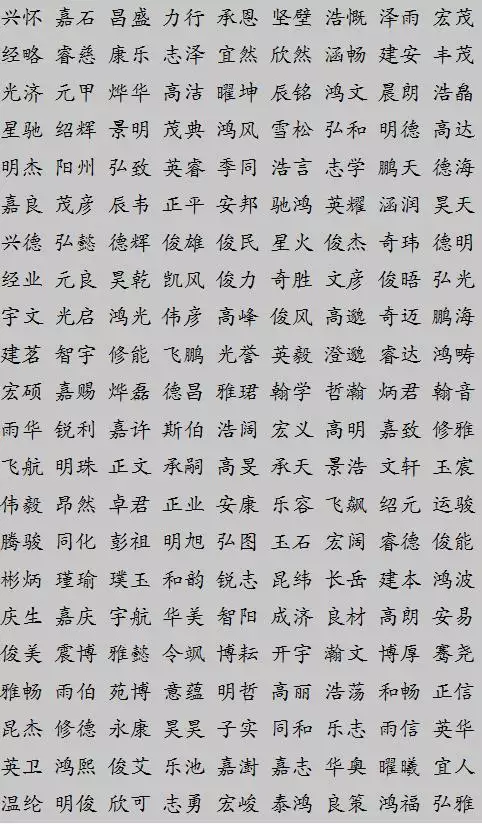 兴怀 嘉石 昌盛 力行 承恩 坚壁 浩慨 泽雨 宏茂
经略 睿慈 康乐 志泽 宜然 欣然 涵畅 建安 丰茂
光济 元甲 烨华 高洁 曜坤 辰铭 鸿文 晨朗 浩皛
星驰 绍辉 景明 茂典 鸿风 雪松 弘和 明德 高达
明杰 阳州 弘致 英睿 季同 浩言 志学 鹏天 德海
嘉良 茂彦 辰韦 正平 安邦 驰鸿 英耀 涵润 昊天
兴德 弘懿 德辉 俊雄 俊民 星火 俊杰 奇玮 德明
经业 元良 昊乾 凯风 俊力 奇胜 文彦 俊晤 弘光
宇文 光启 鸿光 伟彦 高峰 俊风 高邈 奇迈 鹏海
建茗 智宇 修能 飞鹏 光誉 英毅 澄邈 睿达 鸿畴
宏硕 嘉赐 烨磊 德昌 雅珺 翰学 哲瀚 炳君 翰音
雨华 锐利 嘉许 斯伯 浩阔 宏义 高明 嘉致 修雅
飞航 明珠 正文 承嗣 高旻 承天 景浩 文轩 玉宸
伟毅 昂然 卓君 正业 安康 乐容 飞飙 绍元 运骏
腾骏 同化 彭祖 明旭 弘图 玉石 宏阔 睿德 俊能
彬炳 瑾瑜 璞玉 和韵 锐志 昆纬 长岳 建本 鸿波
庆生 嘉庆 宇航 华美 智阳 成济 良材 高朗 安易
俊美 震博 雅懿 令飒 博耘 开宇 瀚文 博厚 骞尧
雅畅 雨伯 苑博 意蕴 明哲 高丽 浩荡 和畅 正信
昆杰 修德 永康 昊昊 子实 同和 乐志 雨信 英华
英卫 鸿熙 俊艾 乐池 嘉澍 嘉志 华奥 曜曦 宜人
温纶 明俊 欣可 志勇 宏峻 泰鸿 良策 鸿福 弘雅